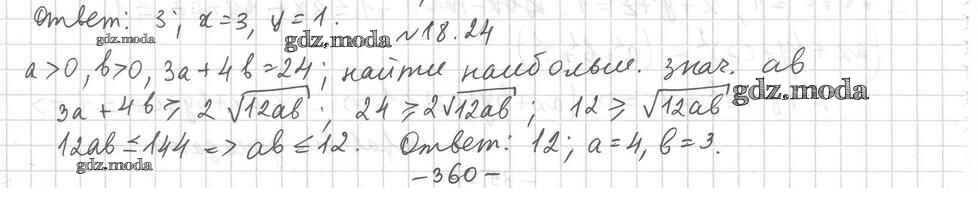 Ответ: 3; x=3, y=1.
gdz.moda
gdz.moda
№18.24
a>0, b>0, 3a+4b=24; найти наибольш. знач. ab
3a+4b≥ 2√12ab; 24≥2√12ab; 12≥ √12ab
gdz.moda
12ab≤144 => ab≤12. Ответ: 12; a=4, b=3.
gdz.moda
-360-